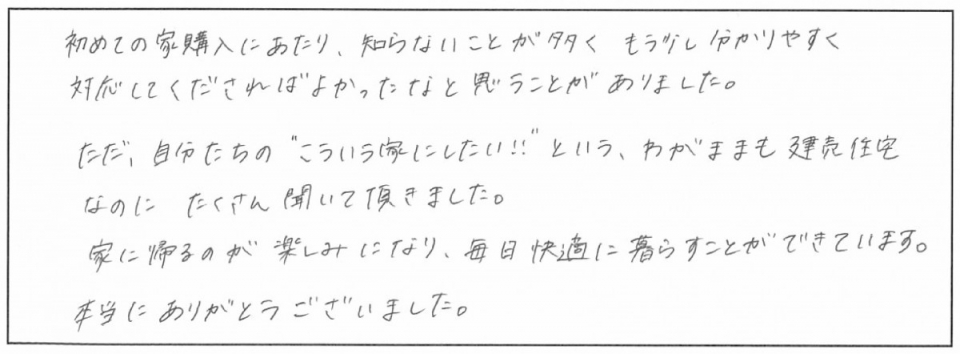 初めての家購入にあたり、知らないことが多く もう少し分かりやすく
対応してくださればよかったなと思うことがありました。
ただ、自分たちの"こういう家にしたい!!"という、わがままも建売住宅
なのに たくさん聞いて頂きました。
家に帰るのが楽しみになり、毎日快適に暮らすことができています。
本当にありがとうございました。